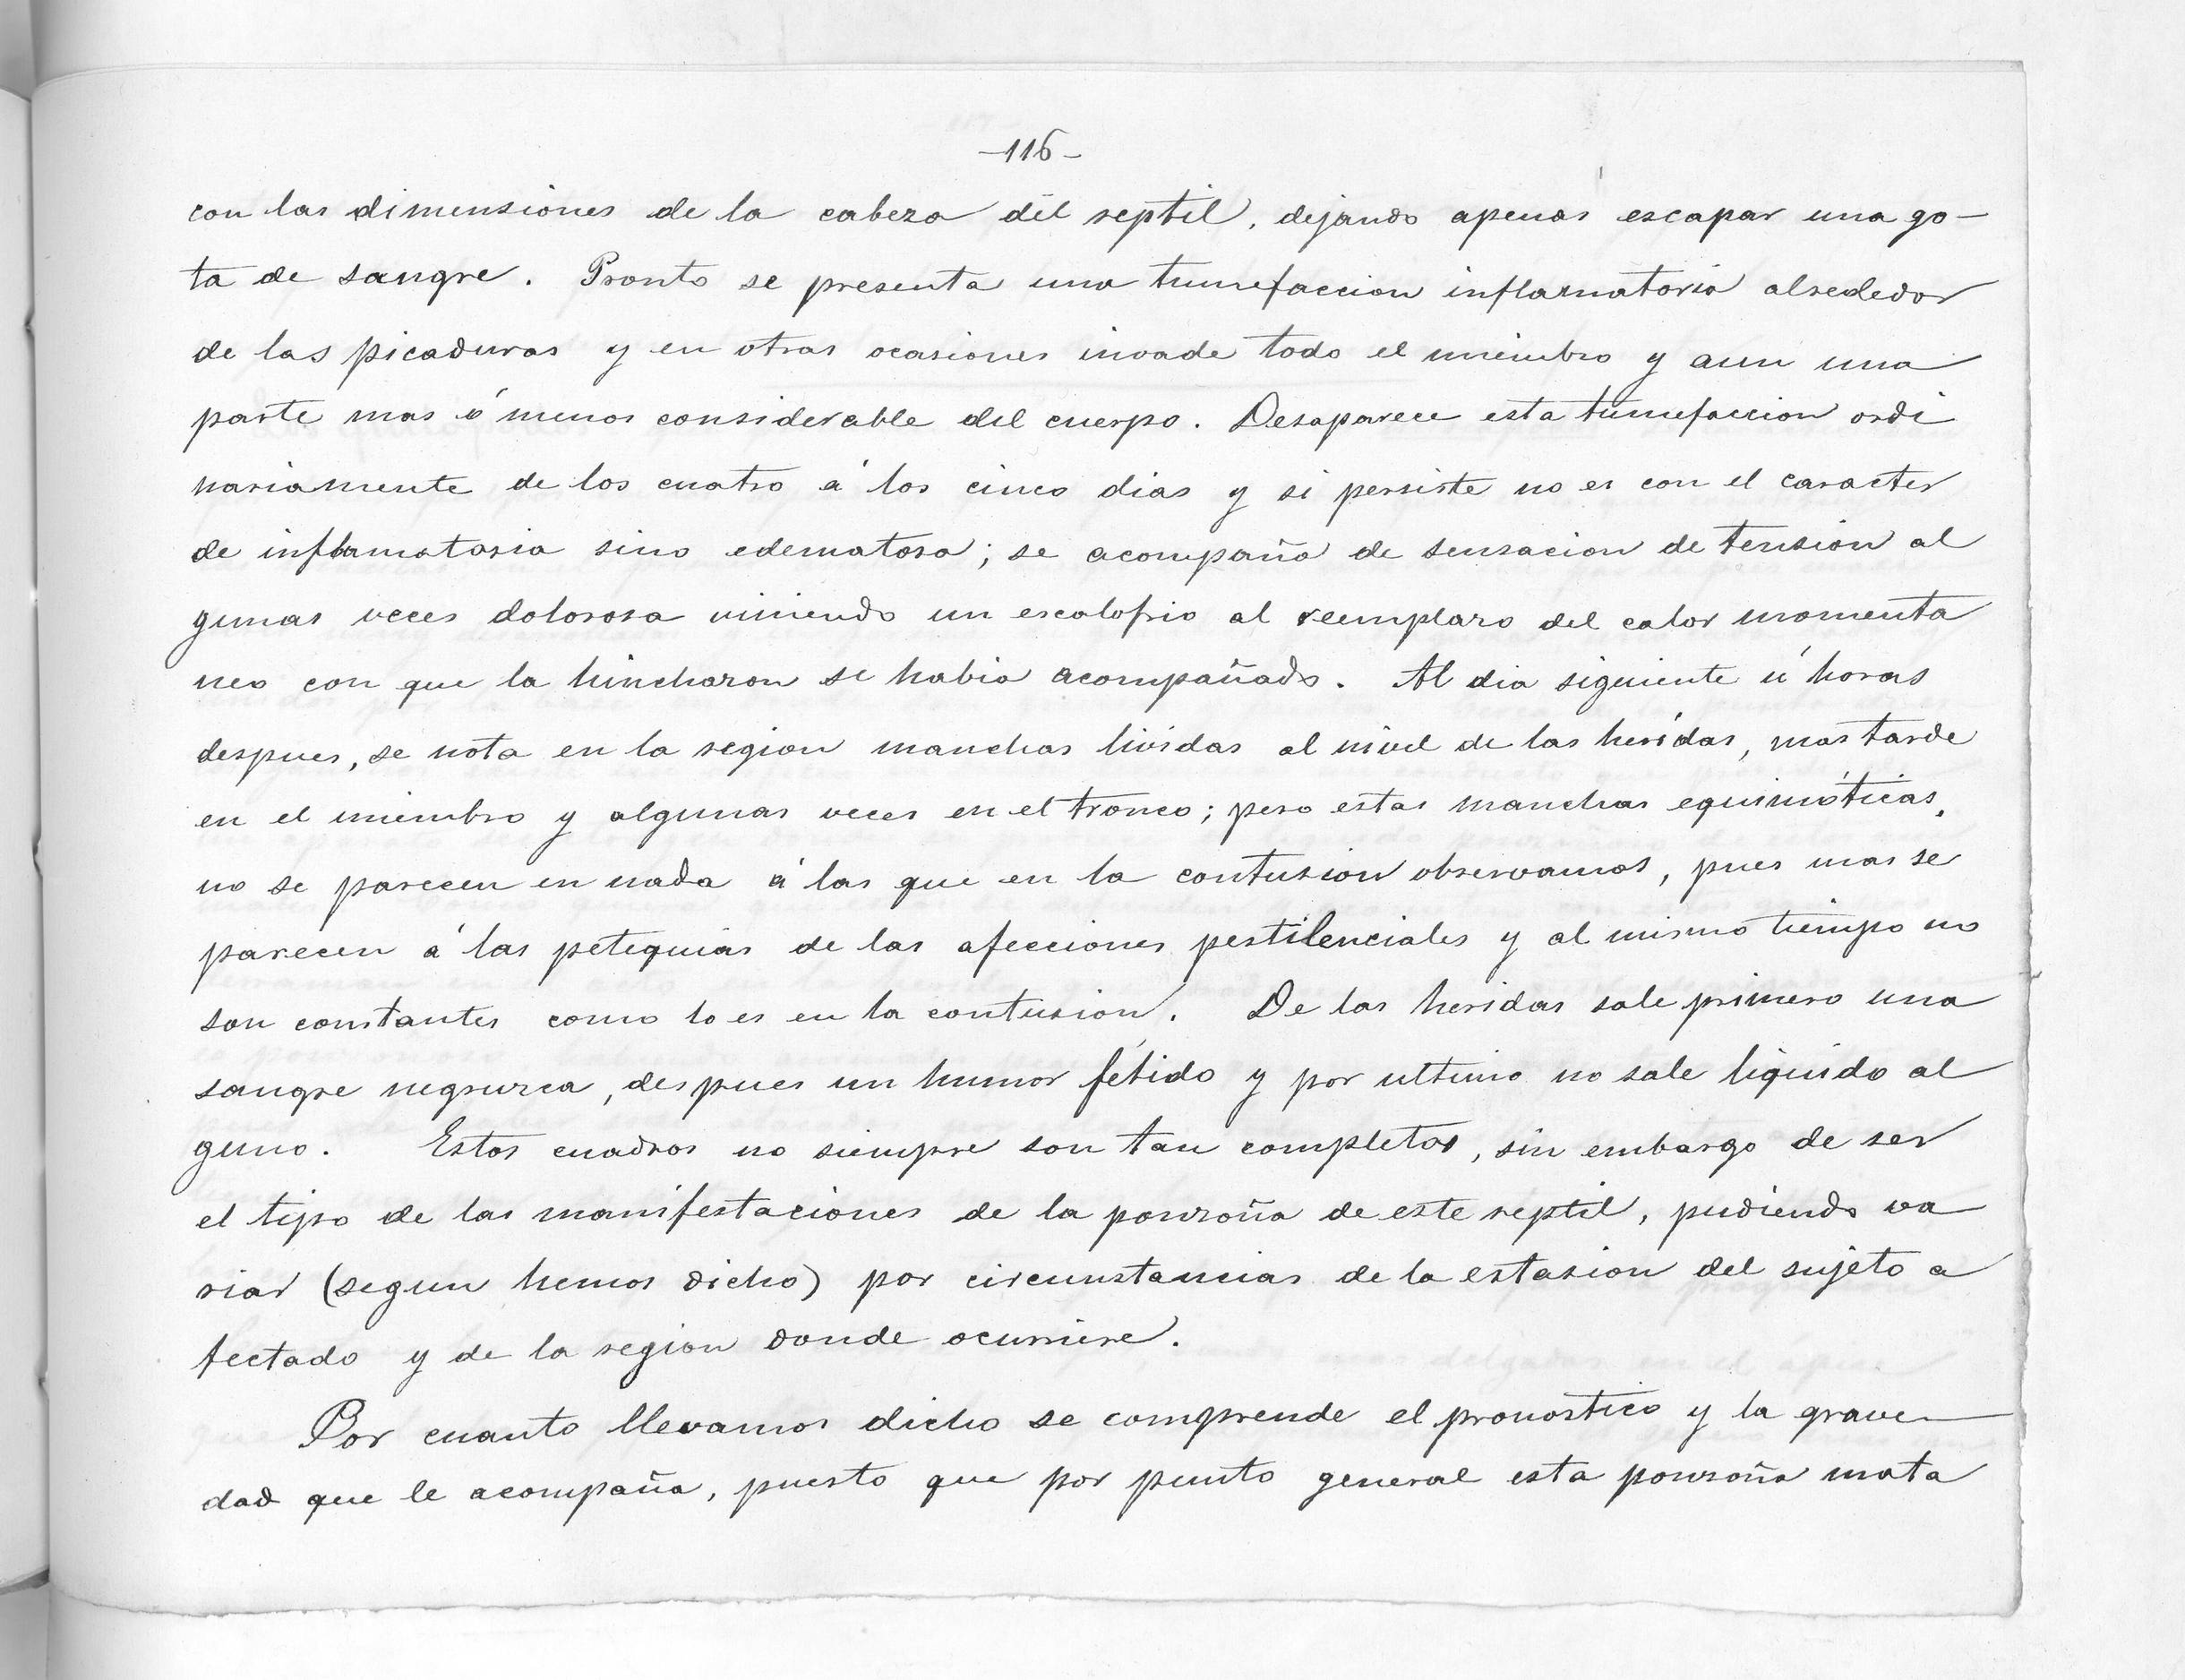 -116-
con las dimensiones de la cabeza del reptil, dejando apenas escapar una go-
ta de sangre. Pronto se presenta una tumefaccion inflamatoria alrededor
de las picaduras y en otras ocasiones invade todo el miembro y aun una
parte mas ó menos considerable del cuerpo. Desaparece esta tumefaccion ordi
nariamente de los cuatro á los cinco dias y si persiste no es con el caracter
de inflamatoria sino edematosa; se acompaña de sensacion de tension al
gunas veces dolorosa viniendo un escalofrio al reemplazo del calor momenta
neo con que la hinchazon se habia acompañado. Al dia siguiente ú horas
despues, se nota en la region manchas lividas al nivel de las heridas, mas tarde
en el miembro y algunas veces en el tronco; pero estas manchas equimóticas,
no se parecen en nada á las que en la contusion observamos, pues mas se
parecen á las petequias de las afecciones pestilenciales y al mismo tiempo no
son constantes como lo es en la contusion. De las heridas sale primero una
sangre negruzca, despues un humor fétido y por ultimo no sale liquido al
guno. Estos cuadros no siempre son tan completos, sin embargo de ser
el tipo de las manifestaciones de la ponzoña de este reptil, pudiendo va
riar (segun hemos dicho) por circunstancias de la estasion del sujeto a
fectado y de la region donde ocurriere.
Por cuanto llevamos dicho se comprende el pronostico y la grave-
dad que le acompaña, puesto que por punto general esta ponzoña mata